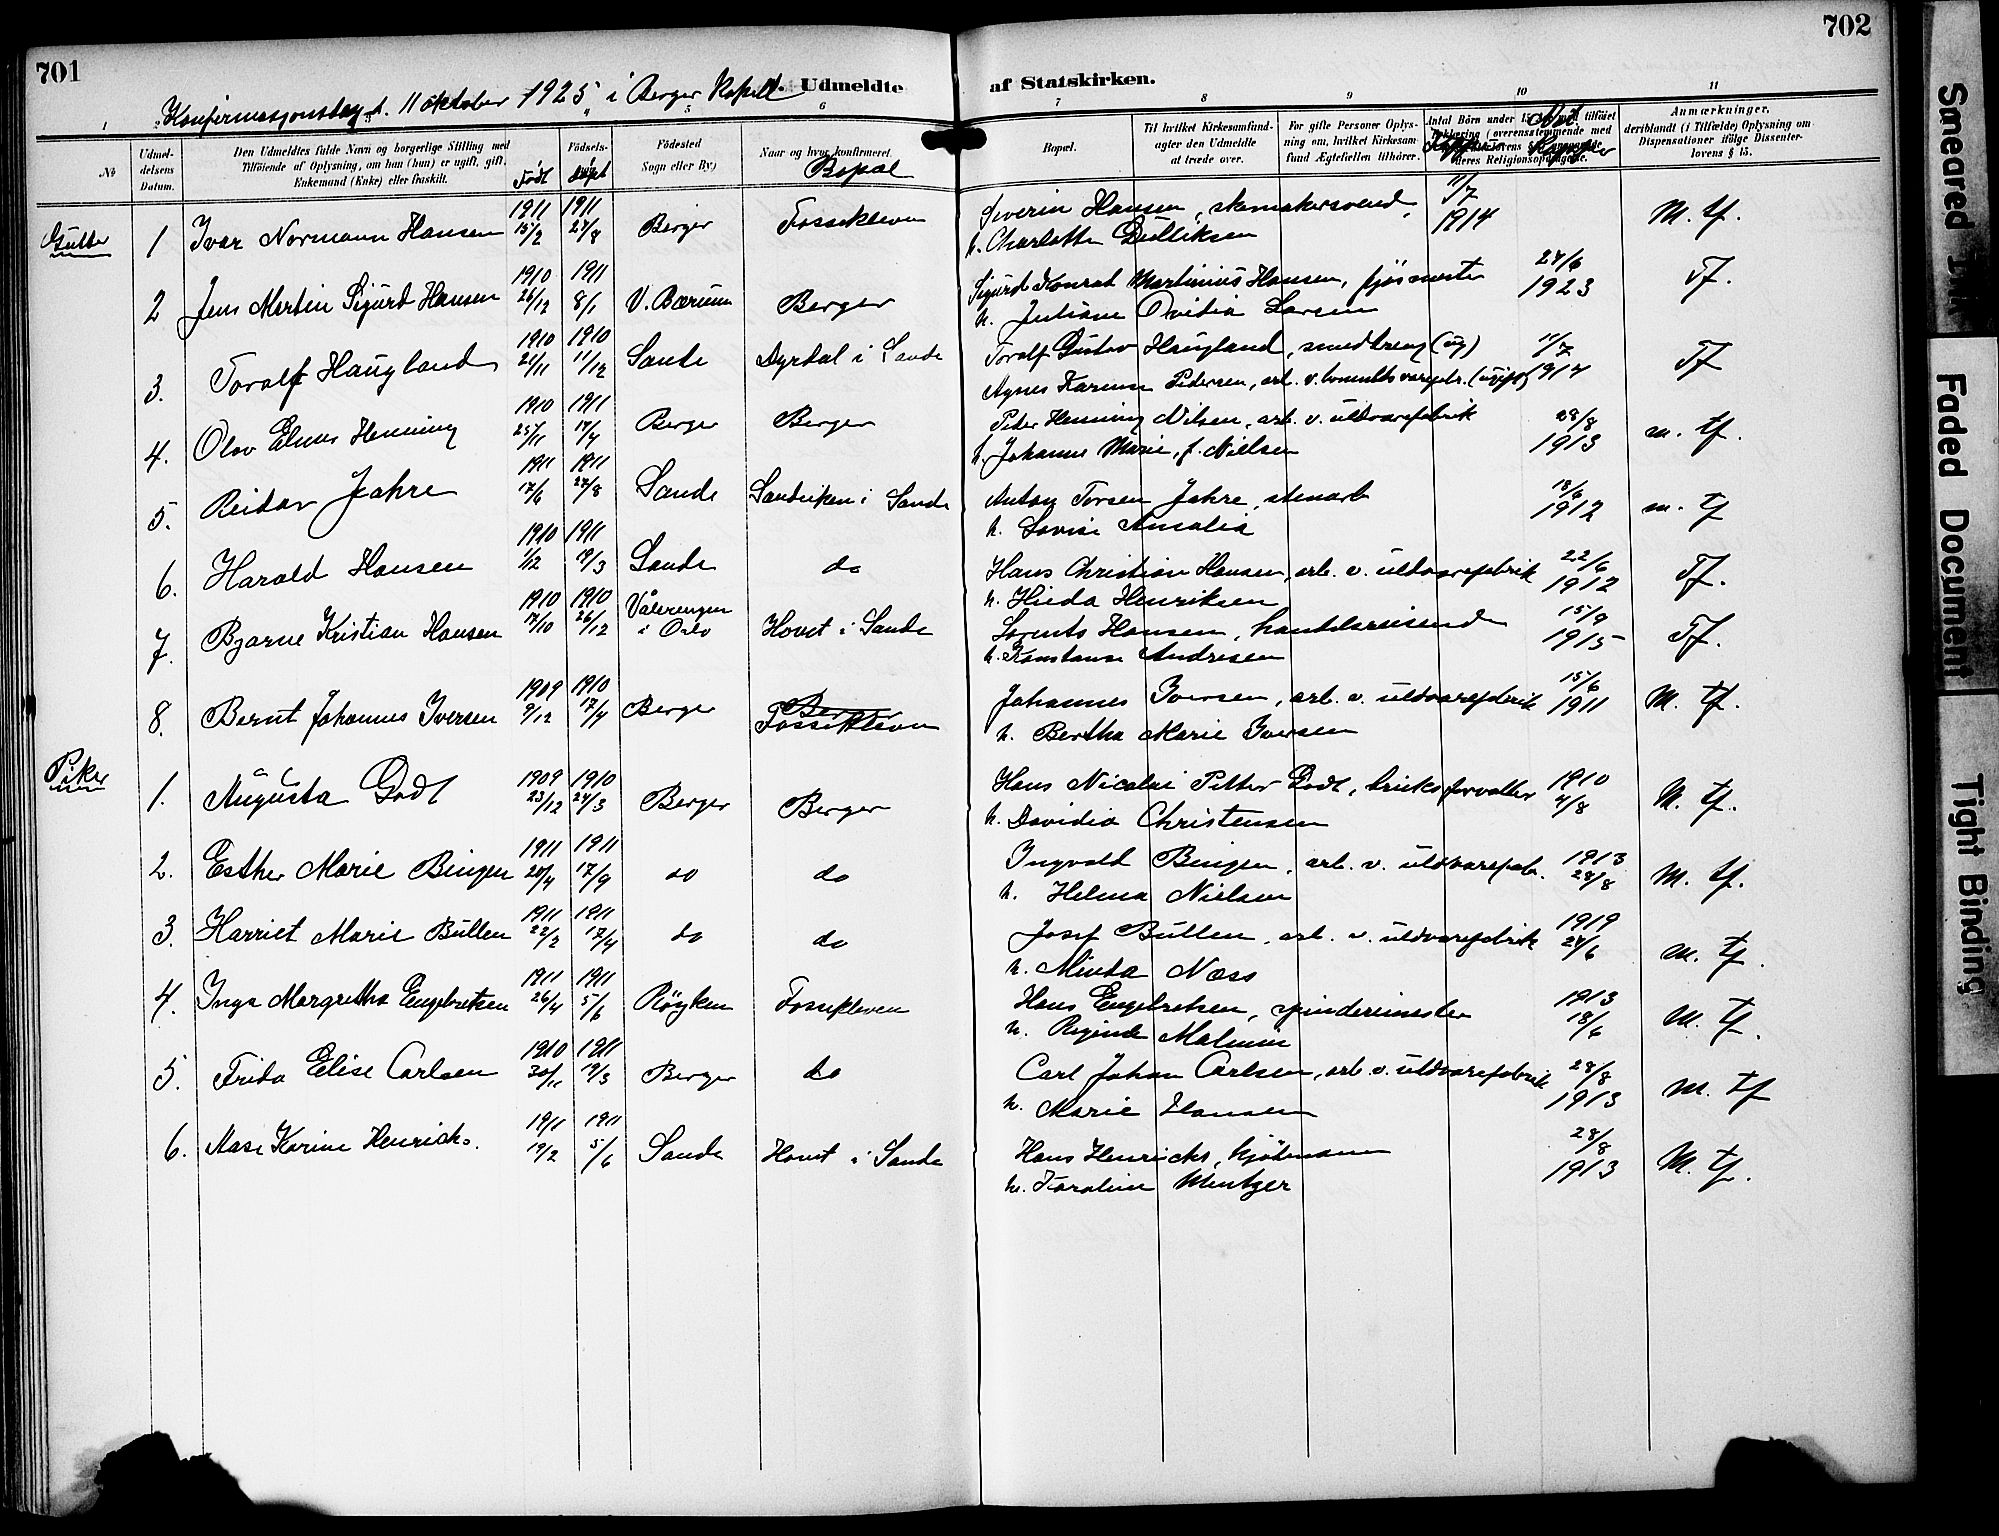 701
702
Konfirmasjonsdag d. 11 oktober 1925 i Berger Kapell
Udmeldte af Statskirken.
1 3 5 6 7 8 9 10 11
№
Udmel-
delsens
Datum.
Den Udmeldtes fulde Navn og borgerlige Stilling med
Tilföiende af Oplysning, om han (hun) er ugift, gift,
Enkemand (Enke) eller fraskilt.
Födsels-
Födt
döpt
Födested
Sogn eller By)
Naar og hvor konfirmeret.
Bopæl
Bopæl.
Til hvilket Kirkesamfund-
agter den Udmeldte
at træde over.
For gifte Personer Oplys-
ning om, hvilket Kirkesam
fund Ægtefællen tilhörer.
Antal Börn under 15
deres Religionsopdragelse.
Anmærkninger.
deriblandt (i Tilfælde) Oplysning om
Dispensationer ifölge Dissenter-
lovens § 15.
Gutter
1 Ivar Normann Hansen 1911 15/2 1911 27/8 Berger Fossekleven Severin Hansen, skomakersvend, 11/7 1914 M. tf.
h. Charlotte Dedliksen
2 Jens Martin Sigurd Hansen 1910 26/12 1911 8/1 V. Bærum Berger Sigurd Konrad Martinius Hansen, fjösmester 24/6 1923 Tf.
h. Juliane Ovidia Larsen
3. Toralf Haugland 1910 21/11 1910 11/12 Sande Dyrdal i Sande Toralf Gustav Haugland, smeddreng (ug) 11/7 1914 Tf
Agnes Karense Pedersen, arb. v.
4. Olav Elmar Henning 1910 25/11 1911 17/4 Berger Berger Peder Henning Nilsen, arb. v. uldvarefabrik 28/8 1913 m. tf.
h. Johanne Marie, f. Nielsen
5. Reidar Jahre 1911 17/6 1911 27/8 Sande Sandviken i Sande Anton Torsen Jahre, stenarb 1912 m. tf
h. Lovise Amalia
6. Harald Hansen 1910 1/12 1911 19/3 Sande do Hans Christian Hansen, arb. v. uldvarefabrik 22/6 1912 Tf.
h. Hilda Henriksen
7. Bjarne Kristian Hansen 1910 17/10 1910 26/12 Vålerengen i Oslo Hovet i Sande Lorents Hansen, handelsreisende 15/9 1915 Tf.
h. Konstanse Andresen
8. Bernt Johannes Iversen 1909 9/12 1910 17/4 Berger Berger Fossekleven Johannes Iversen, arb. v. uldvarefabrik 15/6 1911 M. tf.
h. Bertha Marie Iversen
Piker
1. Augusta Godt 1909 23/12 1910 24/3 Berger Berger Hans Nicolai Petter Godt, bruksforvalter 1910 4/8 M. tf.
h. Davidia Christensen
2. Esther Marie Bingen 1911 20/4 1911 17/9 do do Ingvald Bingen, arb. v. uldvarefabr. 1913 28/8 M. tf.
h. Helma Nielsen
3. Harriet Marie Bullen 1911 22/2 1911 17/4 do do Josef Bullen, arb. v. uldvarefabrik 1919 24/6 M. tf.
h. Minda Næss
4. Inga Margretha Engebretsen 1911 26/4 1911 5/6 Röyken Fossekleven Hans Engebretsen, spinderimester 1913 18/6 M. tf.
h. Reginde Malmin
5. Frida Elise Carlsen 1910 30/11 1911 19/3 Berger do Carl Johan Carlsen, arb. v. uldvarefabrik 28/8 1913 M. tf
h. Marie Hansen
6. Aase Karine Henrichs. 1911 19/2 1911 5/6 Sande Hovet i Sande Hans Henrichs, kjöbmann 28/8 1913 M. tf.
h. Karoline Mentzer
Smeared Ink
Faded Document
Tight Binding